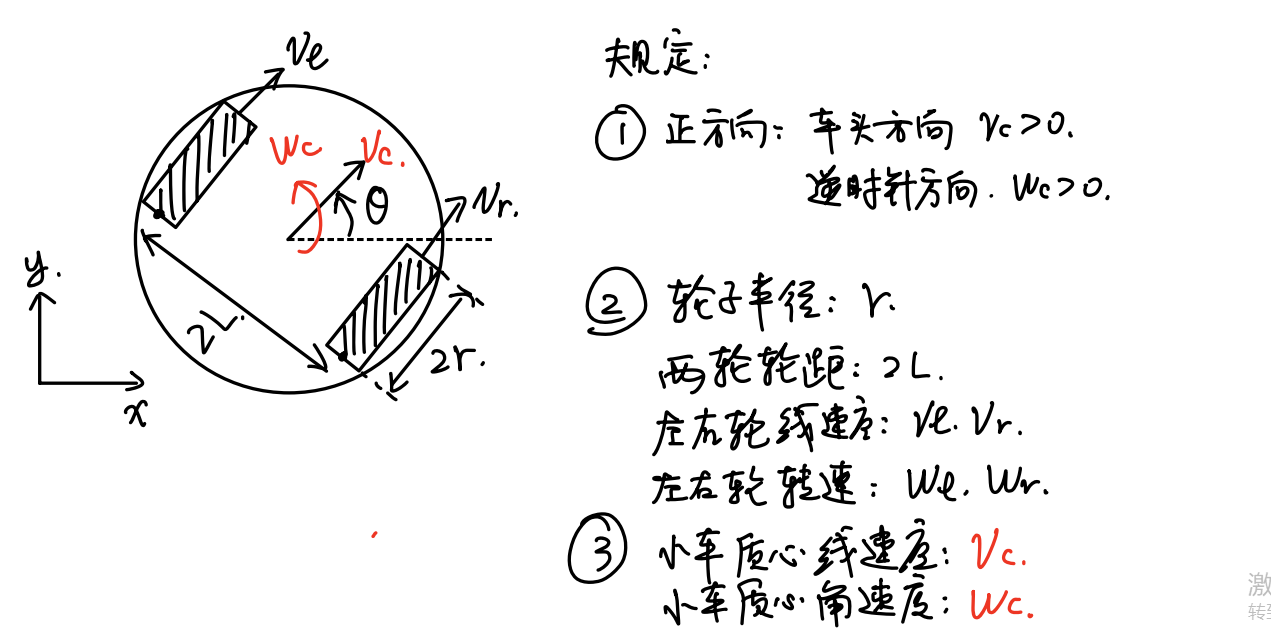 Vl
Wc
Vc.
θ
Vr.
y.
x
2L.
2r.
规定:
① 正方向: 车头方向 Vc>0.
逆时针方向. Wc>0.
② 轮子半径: r.
两轮轮距: 2L.
左右轮线速度: Vl. Vr.
左右轮转速: Wl. Wr.
③ 小车质心线速度: Vc.
小车质心角速度: Wc.
激
转到